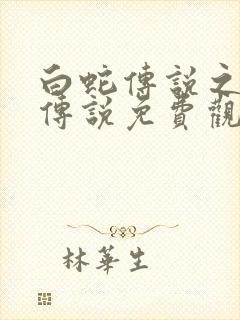 白蛇傳説之
傳説免費觀
林華生